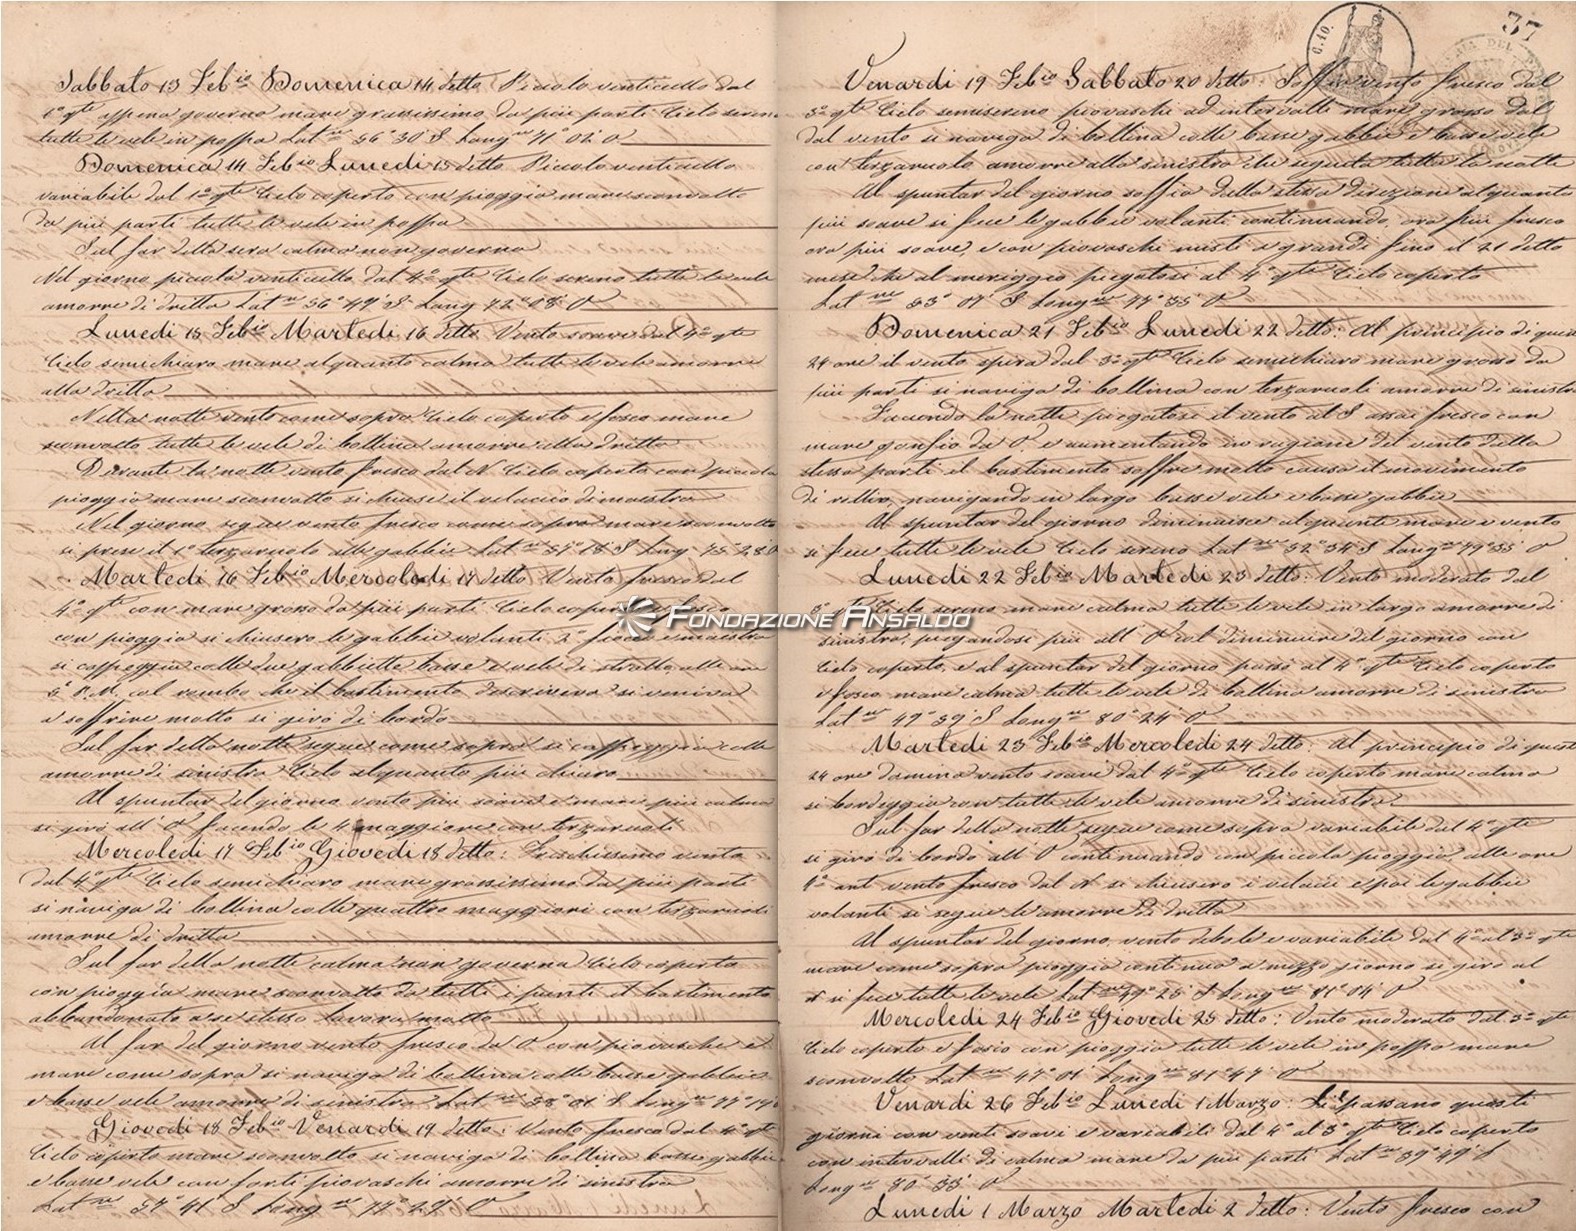 Sabbato 13 Feb.io Domenica 14 detto Piccolo venticello dal
1° qte appena governo mare grossissimo da più parti Cielo sereno
tutte le vele in poppa Lat.ne 56° 30' S Long.ne 71° 02' O
Domenica 14 Feb.io Lunedi 15 detto Piccolo venticello
variabile dal 1° qte Cielo coperto con pioggia mare sconvolto
da più parti tutte le vele in poppa
Sul far della sera calma non governo
Nel giorno piccolo venticello dal 4° qte Cielo sereno tutte le vele
amorre di dritta Lat.ne 56° 47' S Long 72° 08' O
Lunedi 15 Feb.io Martedi 16 detto Vento soave dal 4° qte
Cielo semichiaro mare alquanto calma tutte le vele amorre
alla dritta
Nella notte vento come sopra Cielo coperto e fosco mare
sconvolto tutte le vele di bollina amorre alla dritta
Durante la notte vento fresco dal N. Cielo coperto con piccola
pioggia mare sconvolto si chiuse il velaccio di maestra
Nel giorno segue vento fresco come sopra mare sconvolto
si prese il 1° terzaruolo alle gabbie Lat.ne 57° 18' S Long 75° 28' O
Martedi 16 Feb.io Mercoledi 17 detto Vento fresco dal
4° qte con mare grosso da più parti Cielo coperto e fosco
con pioggia si chiusero le gabbie volanti 2° fiocco e maestra
si cappeggia colle due gabbiette basse e vele di strallo alle ore
6 P.M. col rombo che il bastimento descriveva si veniva
a soffrire molto si girò di bordo
Sul far della notte segue come sopra si cappeggia colle
amorre di sinistra Cielo alquanto più chiaro
Al spuntar del giorno vento più soave e mare più calma
si girò all' O facendo le 4 maggiore con terzaruoli
Mercoledi 17 Feb.io Giovedi 18 detto: Freschissimo vento
dal 4° qte Cielo semichiaro mare grossissimo da più parti
si naviga di bollina colle quattro maggiori con terzaruoli
amorre di dritta
Sul far della notte calma non governa Cielo coperto
con pioggia mare sconvolto da tutti i punti il bastimento
abbandonato a se stesso lavora molto
Al far del giorno vento fresco da O con piovasche e
mare come sopra si naviga di bollina colle basse gabbie
e basse vele amorre di sinistra Lat.ne 58° 01' S Long.ne 77° 14' O
Giovedi 18 Feb.io Venardi 19 detto: Vento fresco dal 4° qte
Cielo coperto mare sconvolto si naviga di bollina basse gabbie
e basse vele con forti piovaschi amorre di sinistra
Lat.ne 57° 41' S Long.ne 77° 29' O
37
G. 10.
Venardi 19 Feb.io Sabbato 20 detto: Soffia vento fresco dal
3° qte Cielo semisereno piovaschi ad intervalli mare grosso dal
dal vento si naviga di bollina colle basse gabbie e basse vele
con terzaruolo amorre alla sinistra che seguita tutta la notte
Al spuntar del giorno soffia della stessa direzione alquanto
più soave si fece le gabbie volanti continuando, ora più fresco
ora più soave, e con piovaschi misti a grandi fino il 21 detto
mese che al meriggio piegatosi al 4° qte Cielo coperto
Lat.ne 53° 07' S Long.ne 77° 35' O
Domenica 21 Feb.io Lunedi 22 detto: Al principio di queste
24 ore il vento spira dal 3° qte Cielo semichiaro mare grosso da
più parti si naviga di bollina con terzaruoli amorre di sinistra
Facendo la notte piegatosi il vento al S assai fresco con
mare gonfio da O. e aumentando in ragione del vento dalla
stessa parti il bastimento soffre molto causa il movimento
di rollio, navigando in largo basse vele e basse gabbie
Al spuntar del giorno diminuisce alquanti mare e vento
si fece tutte le vele Cielo sereno Lat.ne 52° 34' S Long.ne 79° 35' O
Lunedi 22 Feb.io Martedi 23 detto: Vento moderato dal
3° qte Cielo sereno mare calma tutte le vele in largo amorre di
sinistra, piegandosi più all' O col diminuire del giorno con
Cielo coperto, e al spuntar del giorno passò al 4° qte Cielo coperto
e fosco mare calma tutte le vele di bollina amorre di sinistra
Lat.ne 49° 39' S Long.ne 80° 24' O
Martedi 23 Feb.io Mercoledi 24 detto: Al principio di queste
24 ore domina vento soave dal 4° qte Cielo coperto mare calma
si bordeggia con tutte le vele amorre di sinistra
Sul far della notte segue come sopra variabile dal 4° qte
si girò di bordo all' O continuando con piccola pioggia, alle ore
4 ant vento fresco dal N si chiusero i velacci e poi le gabbie
volanti si segue le amorre di dritta
Al spuntar del giorno, vento debole e variabile dal 4° al 3° qte
mare come sopra pioggia continua a mezzo giorno si girò al
N si fece tutte le vele Lat.ne 49° 25' S Long.ne 81° 04' O
Mercoledi 24 Feb.io Giovedi 25 detto: Vento moderato dal 3° qte
Cielo coperto e fosco con pioggia tutte le vele in poppa mare
sconvolto Lat.ne 47° 01' Long.ne 81° 47' O
Venardi 26 Feb.io Lunedi 1 Marzo: Si passano questi
giorni con venti soavi e variabili dal 4° al 3° qte Cielo coperto
con intervalli di calma mare da più parti Lat.ne 39° 49' S
Long.ne 80° 33' O
Lunedi 1 Marzo Martedi 2 detto: Vento fresco con
FONDAZIONE ANSALDO